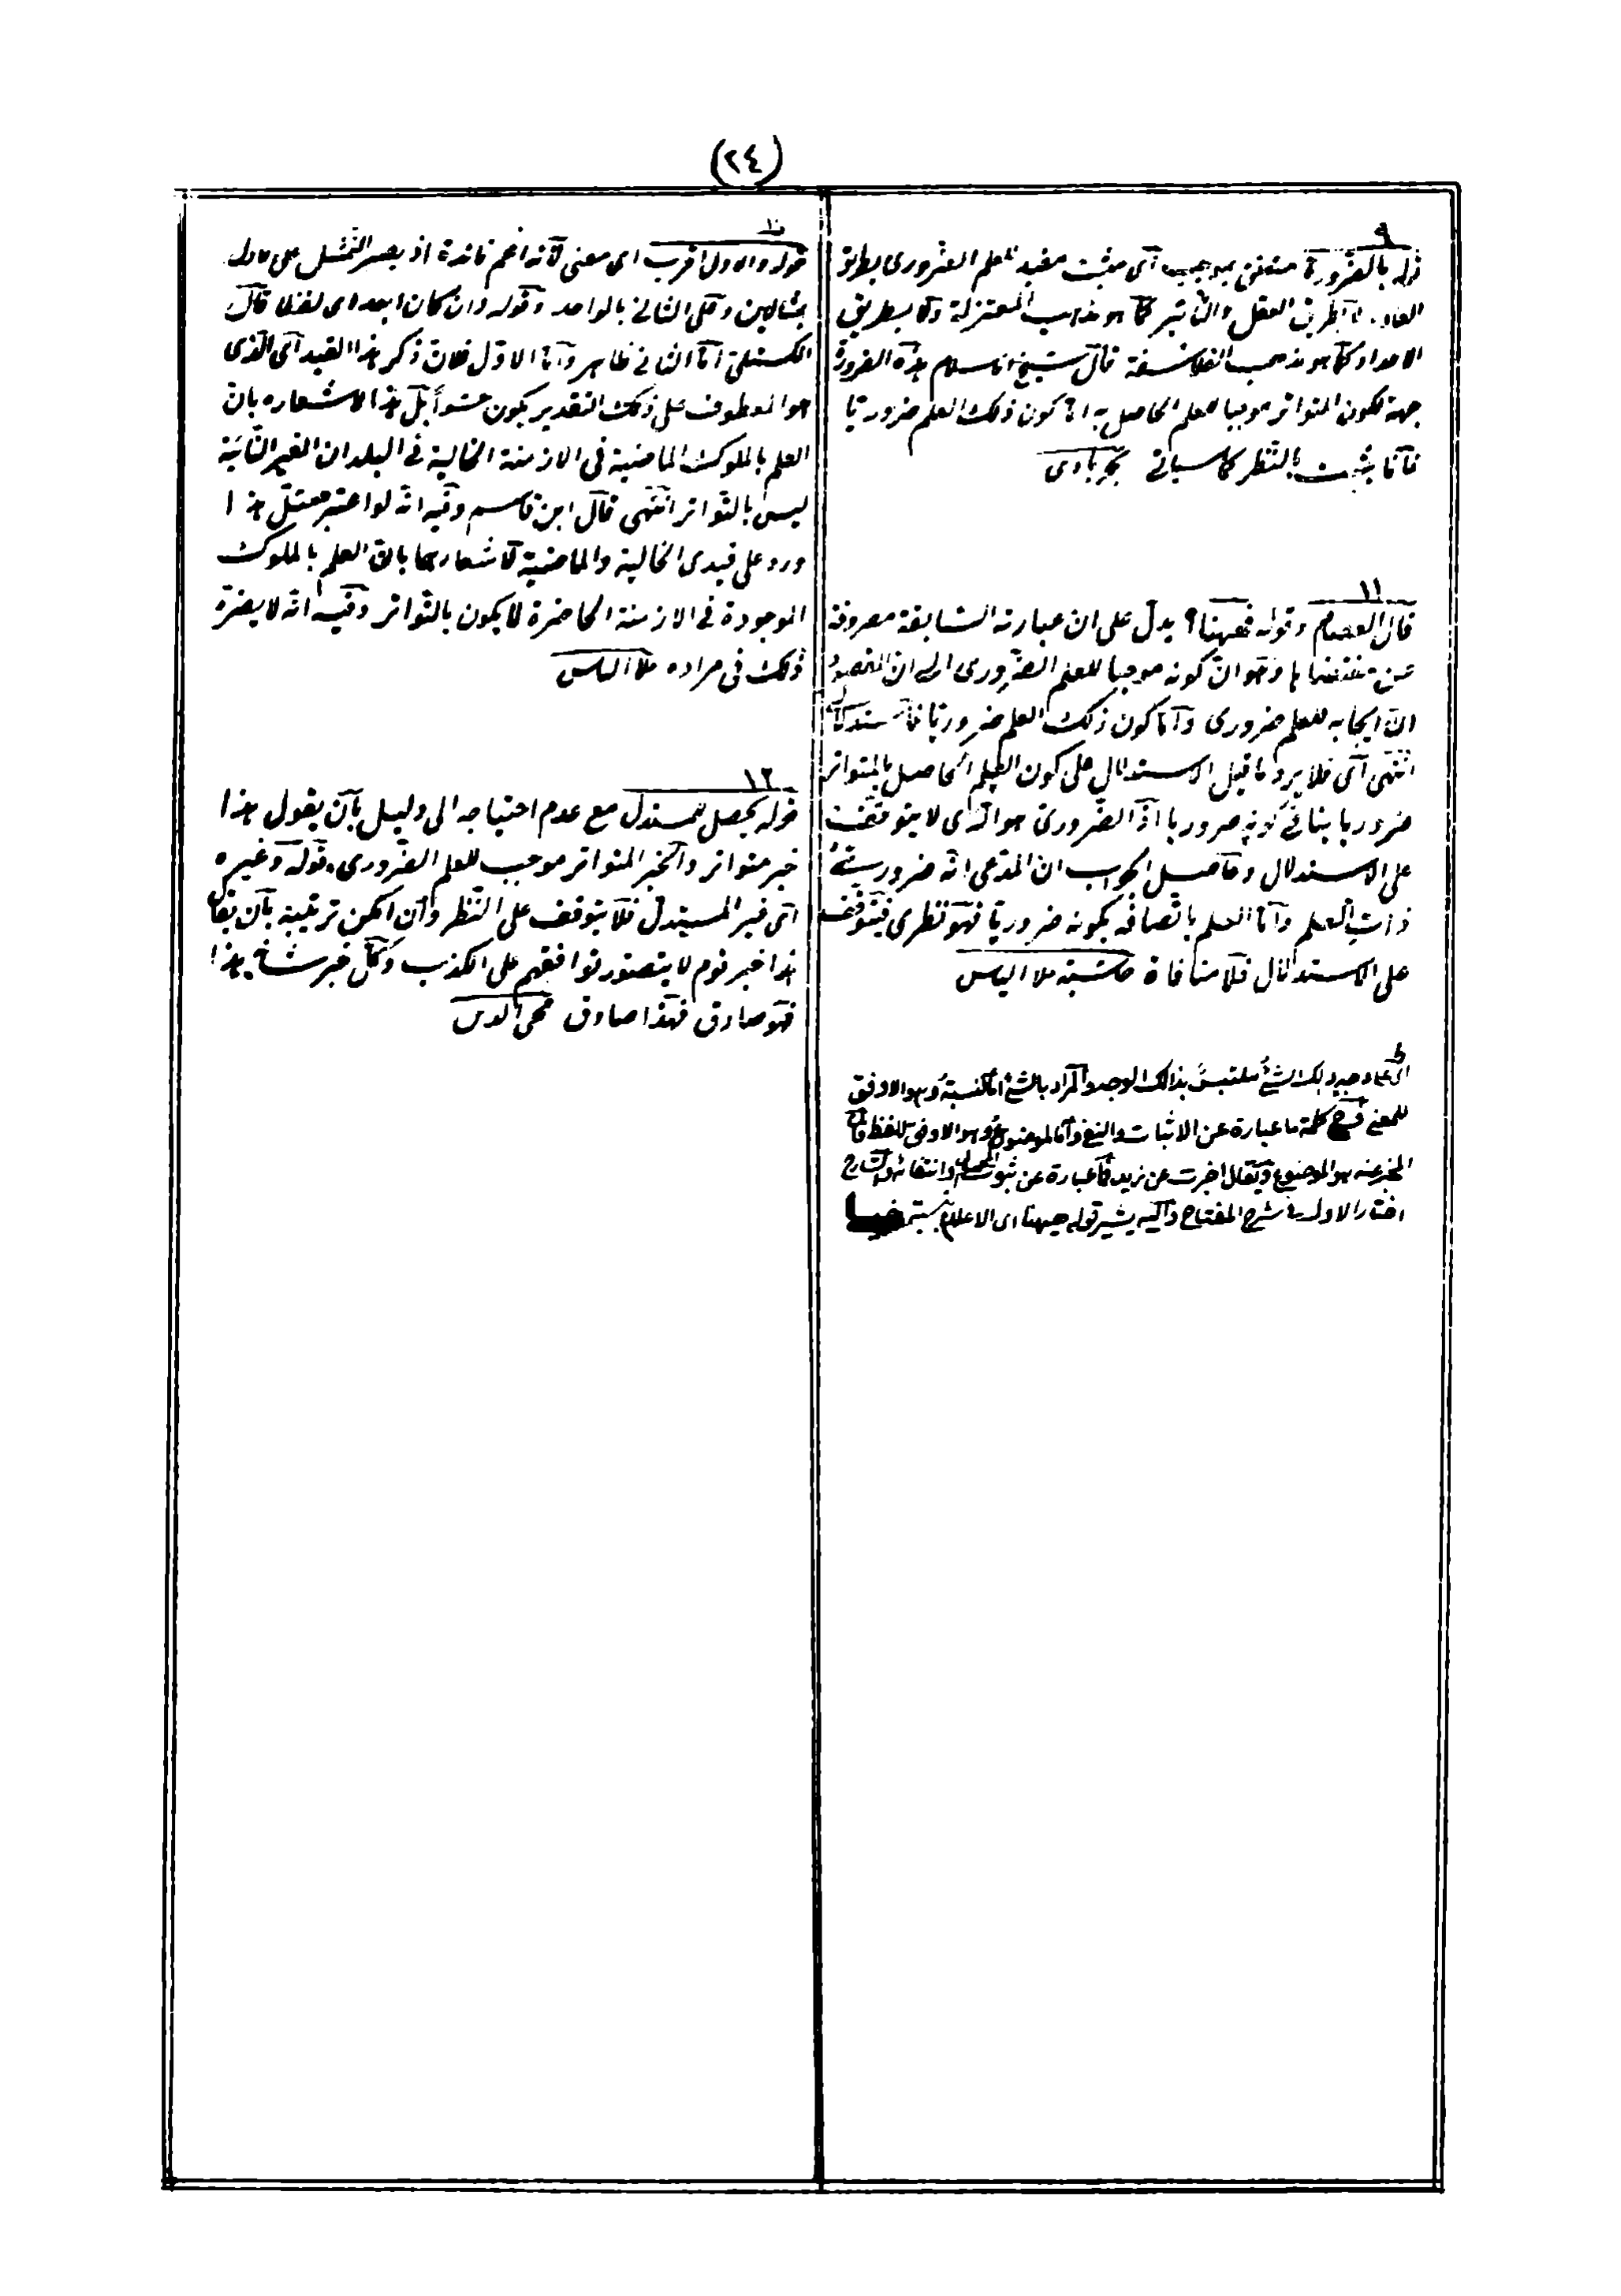 (٢٤)
٩
قوله بالضرورة متعلق بموجب أى مثبت مفيد للعلم الضرورى بطريق
العادة لا بطريق العقل والتأثير كما هو مذهب المعتزلة ولا بطريق
الاعداد كما هو مذهب الفلاسفة قال شيخ الاسلام هذه الضرورة
جهة لكون المتواتر موجبا للعلم الحاصل به اما كون ذلك العلم ضروريا
فانما يثبت بالنظر كما سيأتى
١١
قال العصام وقوله فههنا؟ يدل على ان عبارته السابقة مصروفة
عن مقتضاها وهو ان كونه موجبا للعلم الضرورى الى ان المقصود
ان ايجابه للعلم ضرورى واما كون ذلك العلم ضروريا
انتهى أى فلا يرد ما قيل الاستدلال على كون العلم الحاصل بالمتواتر
ضروريا ينافى كونه ضروريا اذ الضرورى هو الذى لا يتوقف
على الاستدلال وحاصل الجواب ان المدعى انه ضرورى
ذات العلم واما العلم باتصافه بكونه ضروريا فهو نظرى فيتوقف
على الاستدلال فلا منافاة حاشية ملا الياس
اى على وجه ذلك الشئ ملتبس بذالك الوجه والمراد بالشئ اما النسبة وهو الاوفق
للمعنى فح كلمة ما عبارة عن الاثبات والنفى واما الموضوع وهو الاوفق للفظ
المخبر عنه هو الموضوع ويقال اخبرت عن زيد فما عبارة عن ثبوت المحمول وانتفائه والشارح
اختار الاول فى شرح المفتاح واليه يشير قوله ههنا اى الاعلام بنسبة
١٠
قوله والاول اقرب اى معنى لانه اعم فائدة اذ يصير التمثيل على الاول
بمثالين وعلى الثانى بالواحد وقوله وان كان ابعد اى لفظا قال
الكستلى اما الثانى ظاهر واما الاول فلان ذكر هذا القيد أى الذى
هو المعطوف على ذلك التقدير يكون حشوا بل هذا لاشعاره بان
العلم بالملوك الماضية فى الازمنة الخالية فى البلدان الغير النائية
ليس بالتواتر انتهى قال ابن قاسم وفيه انه لو اعتبر مثل هذا
ورد على قيدى الخالية والماضية لاشعارهما بان العلم بالملوك
الموجودة فى الازمنة الحاضرة لا يكون بالتواتر وفيه انه لا يضره
ذلك فى مراده ملا الياس
١٢
قوله يحصل للمستدل مع عدم احتياجه الى دليل بأن يقول هذا
خبر متواتر والخبر المتواتر موجب للعلم الضرورى، قوله وغيره
أى غير المستدل فلا يتوقف على النظر وان امكن ترتيبه بأن يقال
هذا خبر قوم لا يتصور توافقهم على الكذب وكل خبر شانه هذا
فهو صادق فهذا صادق محى الدين